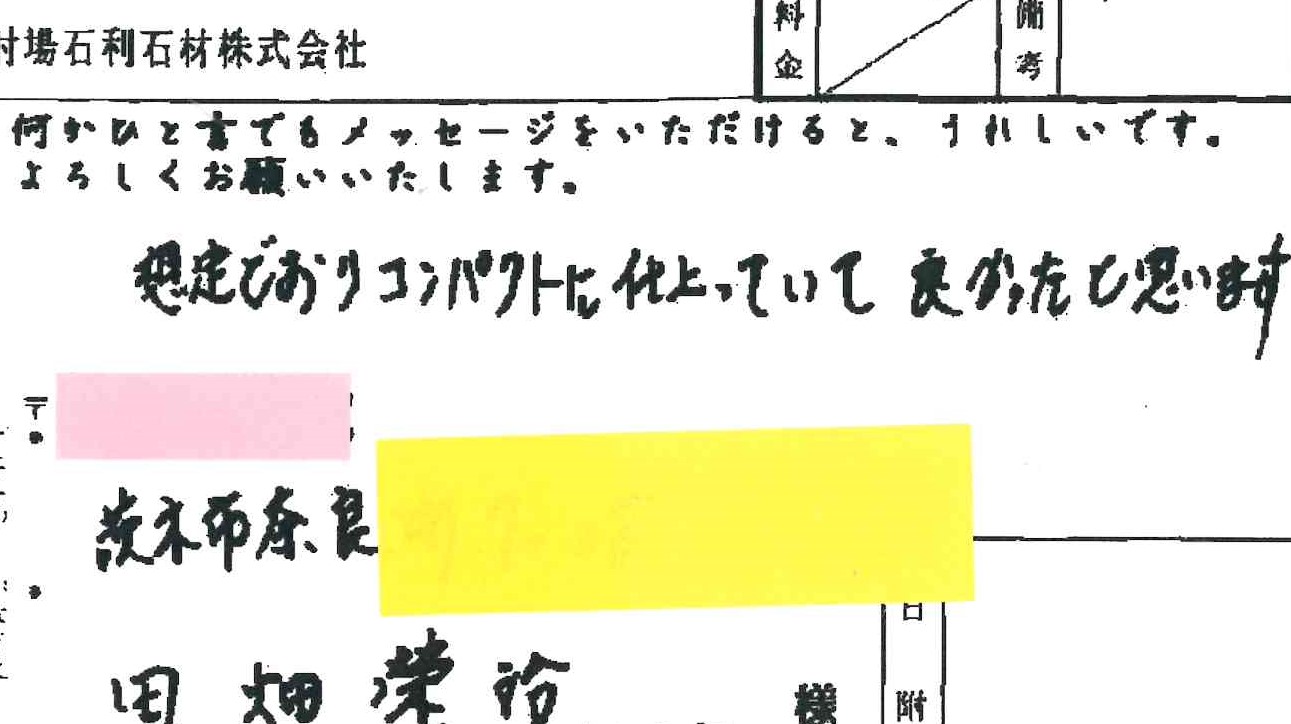 村場石利石材株式会社
料金
備考
何かひと言でもメッセージをいただけると、うれしいです。
よろしくお願いいたします。
想定どおりコンパクトに仕上っていて良かったと思います
〒
茨木市奈良
日附
田畑榮 様